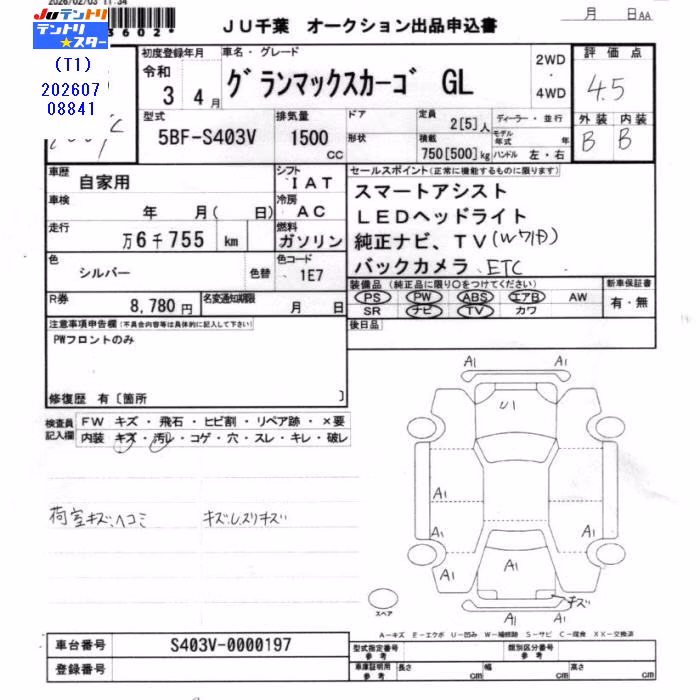 2026/02/03 11:34
Juテントリ
テントリ
★スター
3602*
(T1)
202607
08841
JU千葉 オークション出品申込書
月 日AA
初度登録年月
令和
3 4月
車名・グレード
グランマックスカーゴ GL
2WD
・
4WD
評価点
4.5
外装 内装
B B
型式
5BF-S403V
排気量
1500
CC
ドア
形状
定員
2[5]人
積載
750[500]kg
ディーラー・並行
モデル年式 年
ハンドル 左・右
車歴
自家用
シフト
IAT
車検
年 月( 日)
冷房
AC
走行
万6千755 km
燃料
ガソリン
色
シルバー
色替
色コード
1E7
R券
8,780円
名変通知期限
月 日
セールスポイント(正常に機能するものに限ります)
スマートアシスト
LEDヘッドライト
純正ナビ、TV(Wワ内)
バックカメラ ETC
装備品(純正品に限り○をつけてください)
PS PW ABS エアB AW
SR ナビ TV カワ
新車保証書
有・無
後日品
注意事項申告欄(不具合内容等は具体的に記入して下さい)
PWフロントのみ
修復歴 有〔箇所 〕
検査員
記入欄
FW キズ・飛石・ヒビ割・リペア跡・×要
内装 キズ・汚レ・コゲ・穴・スレ・キレ・破レ
荷室キズ、ヘコミ
キズ、スリキズ
A1 A1
U1
A1
A1 A1
A1 A1 A1
キズ
A1 A1
スペア
A-キズ E-エクボ U-凹み W-補修跡 S-サビ C-腐食 XX-交換済
車台番号
S403V-0000197
登録番号
型式指定番号
参考
類別区分番号
参考
車庫証明用
参考
長さ cm 幅 cm 高さ cm